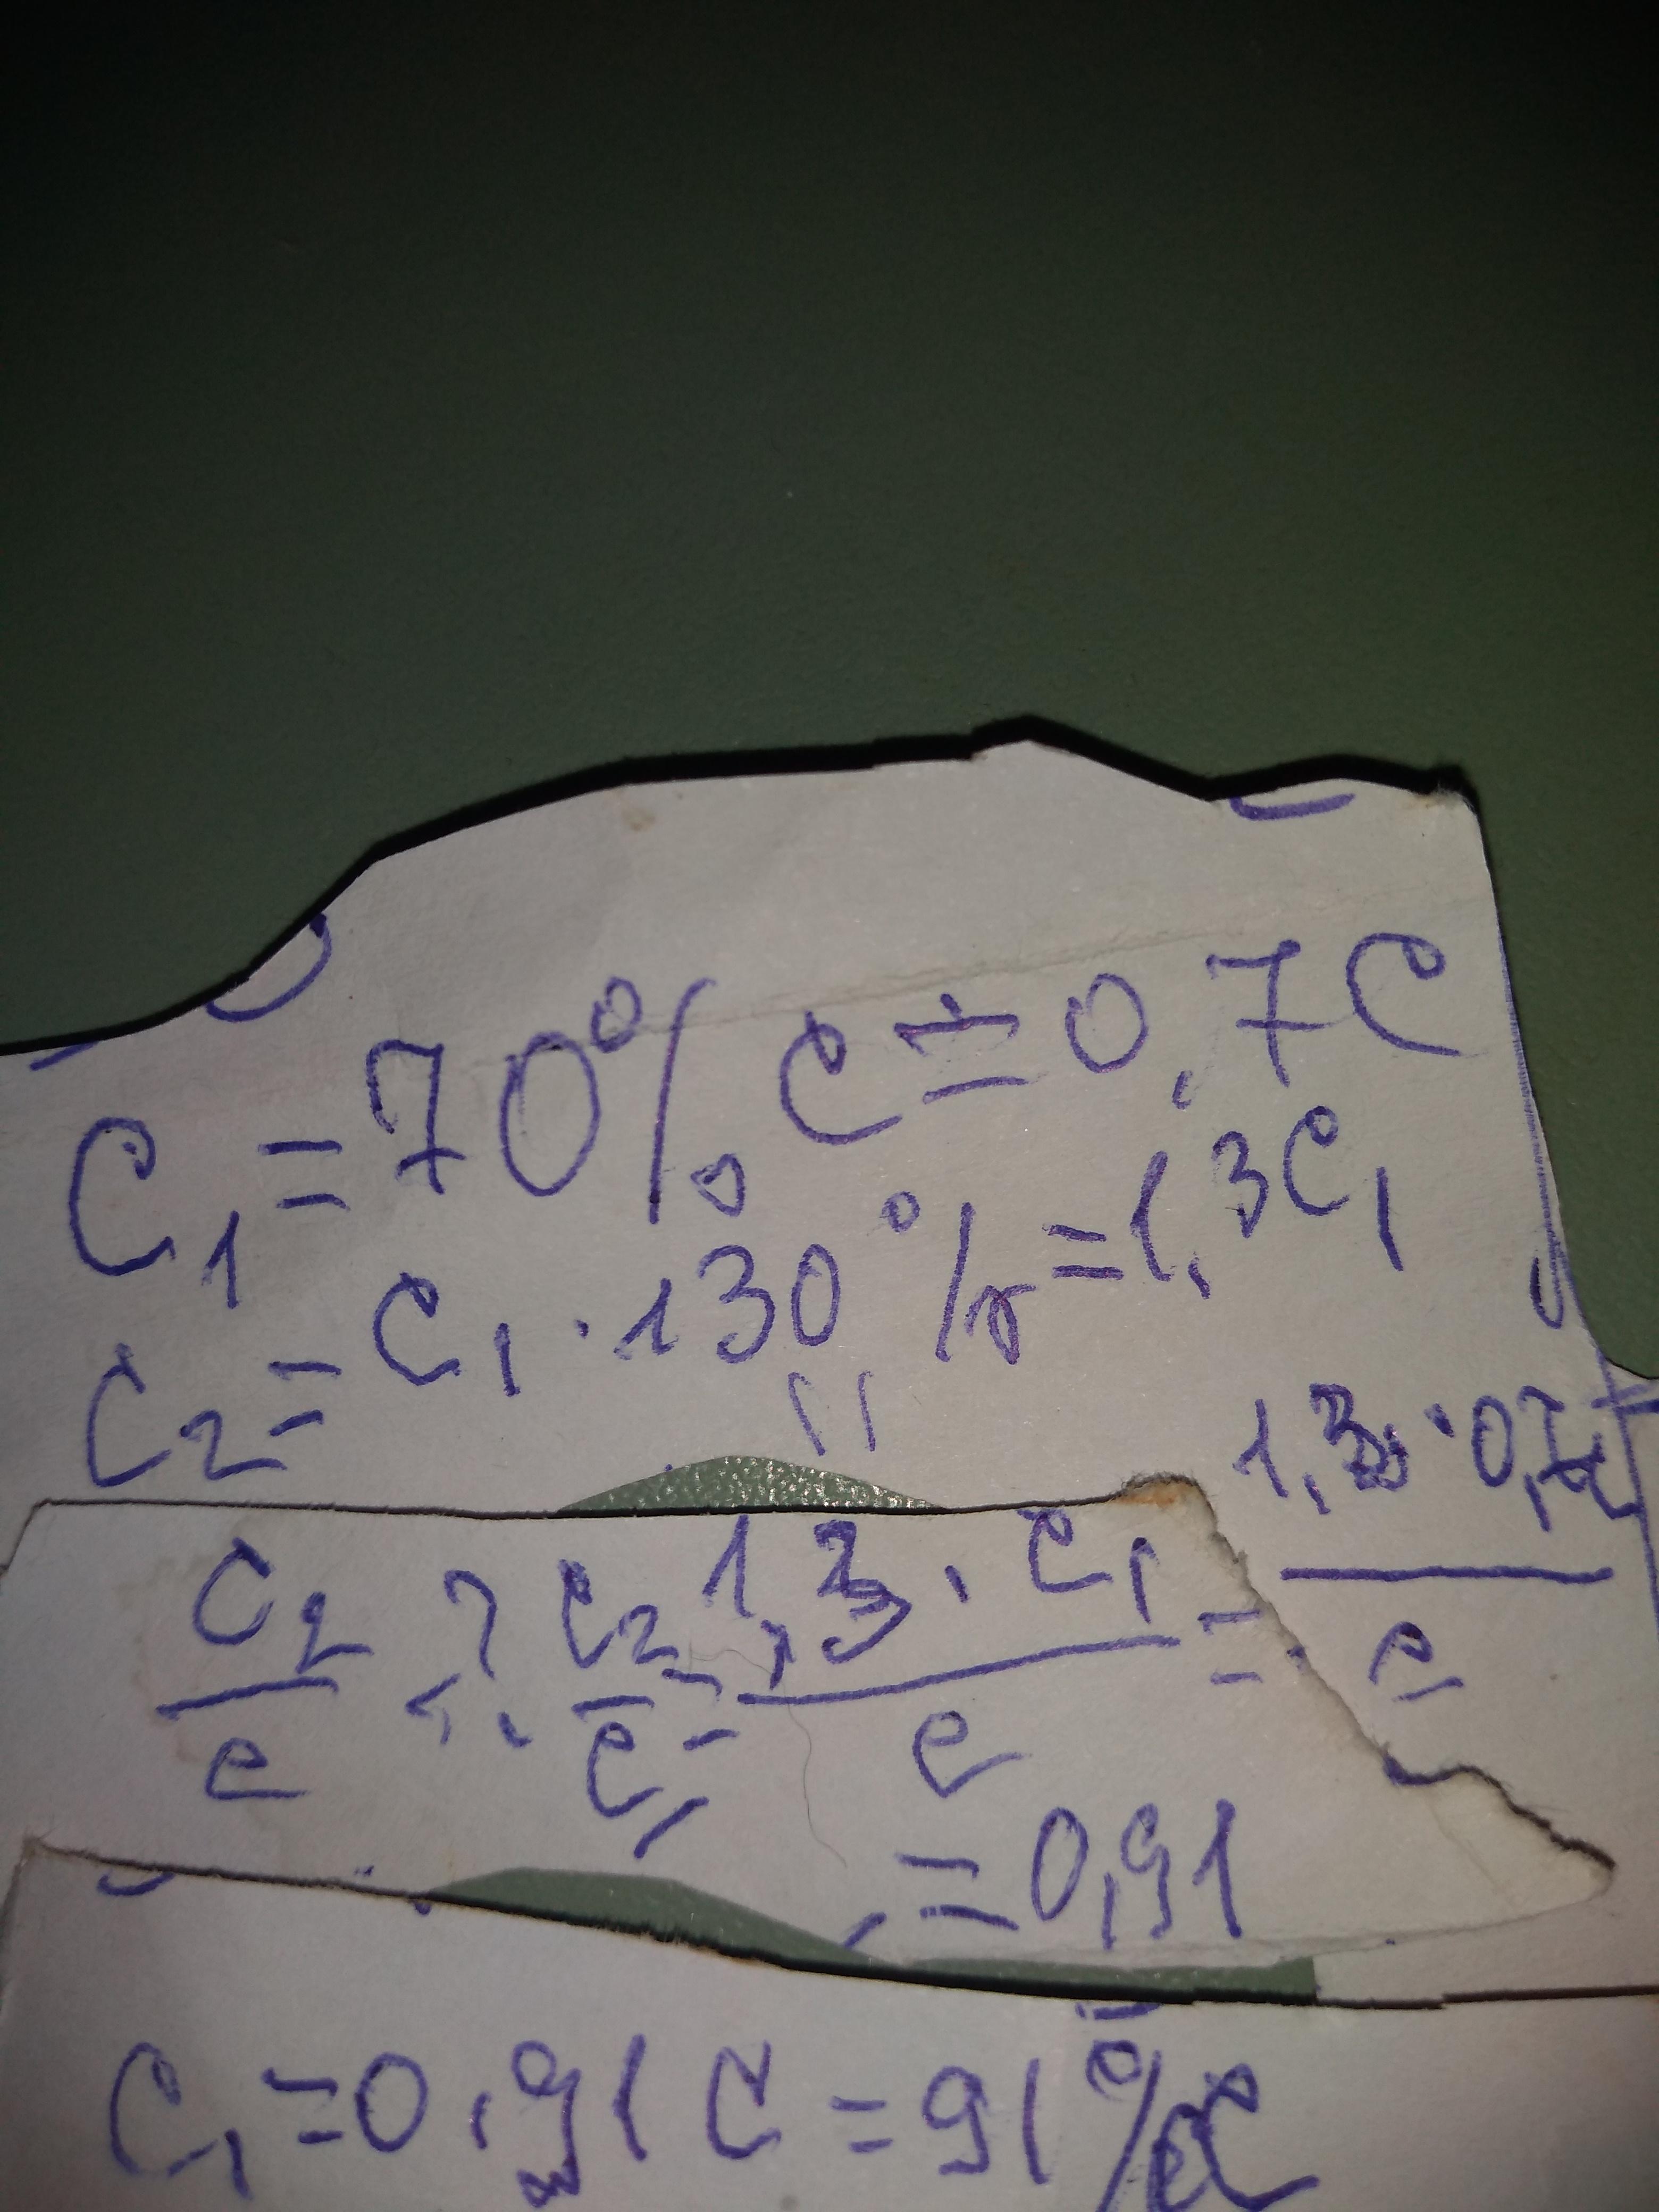 C₁ = 70% C = 0,7C
C₂ = C₁ · 130% = 1,3C₁
C₂/C = ? C₂/C₁ = 1,3 · C₁/C = 1,3 · 0,7C/C
= 0,91
C₁ = 0,91 C = 91% C